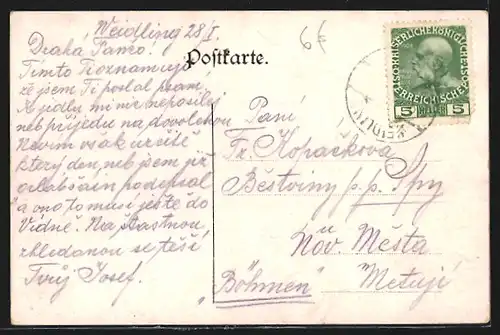 Weidling 28/I.
Draha Pančo!
Tímto Ti oznamuji
že jsem Ti poslal psaní.
A jidlu mi nic neposílej
neb přijedu na dovolenou
Nevím však určitě
který den, neb jsem již
podepsal
a ono to musí ještě do
Vídně. Na šťastnou
zhledanou se těší
Tvůj Josef.
Postkarte.
6f
KAISERLICHEKÖNIGLICHE
ÖSTERREICHISCHE
5 HELLER 5
WEIDLING
Paní
Fr. Kopáčková
Běstviny p.p. Spy
Nov. Města
"Böhmen" Metují